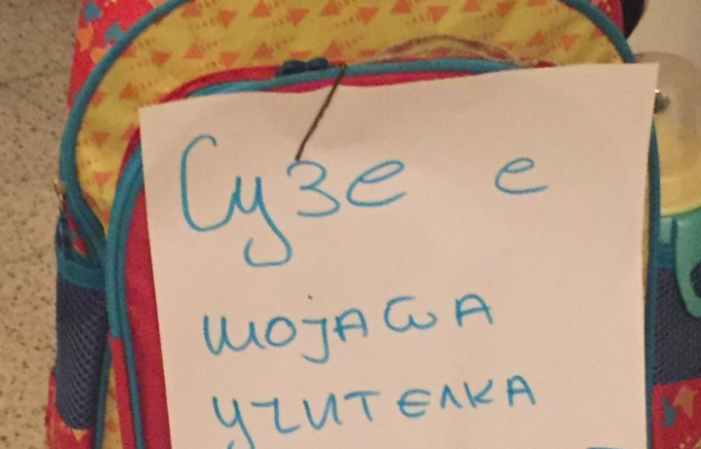 Сузе е
мојата
учителка